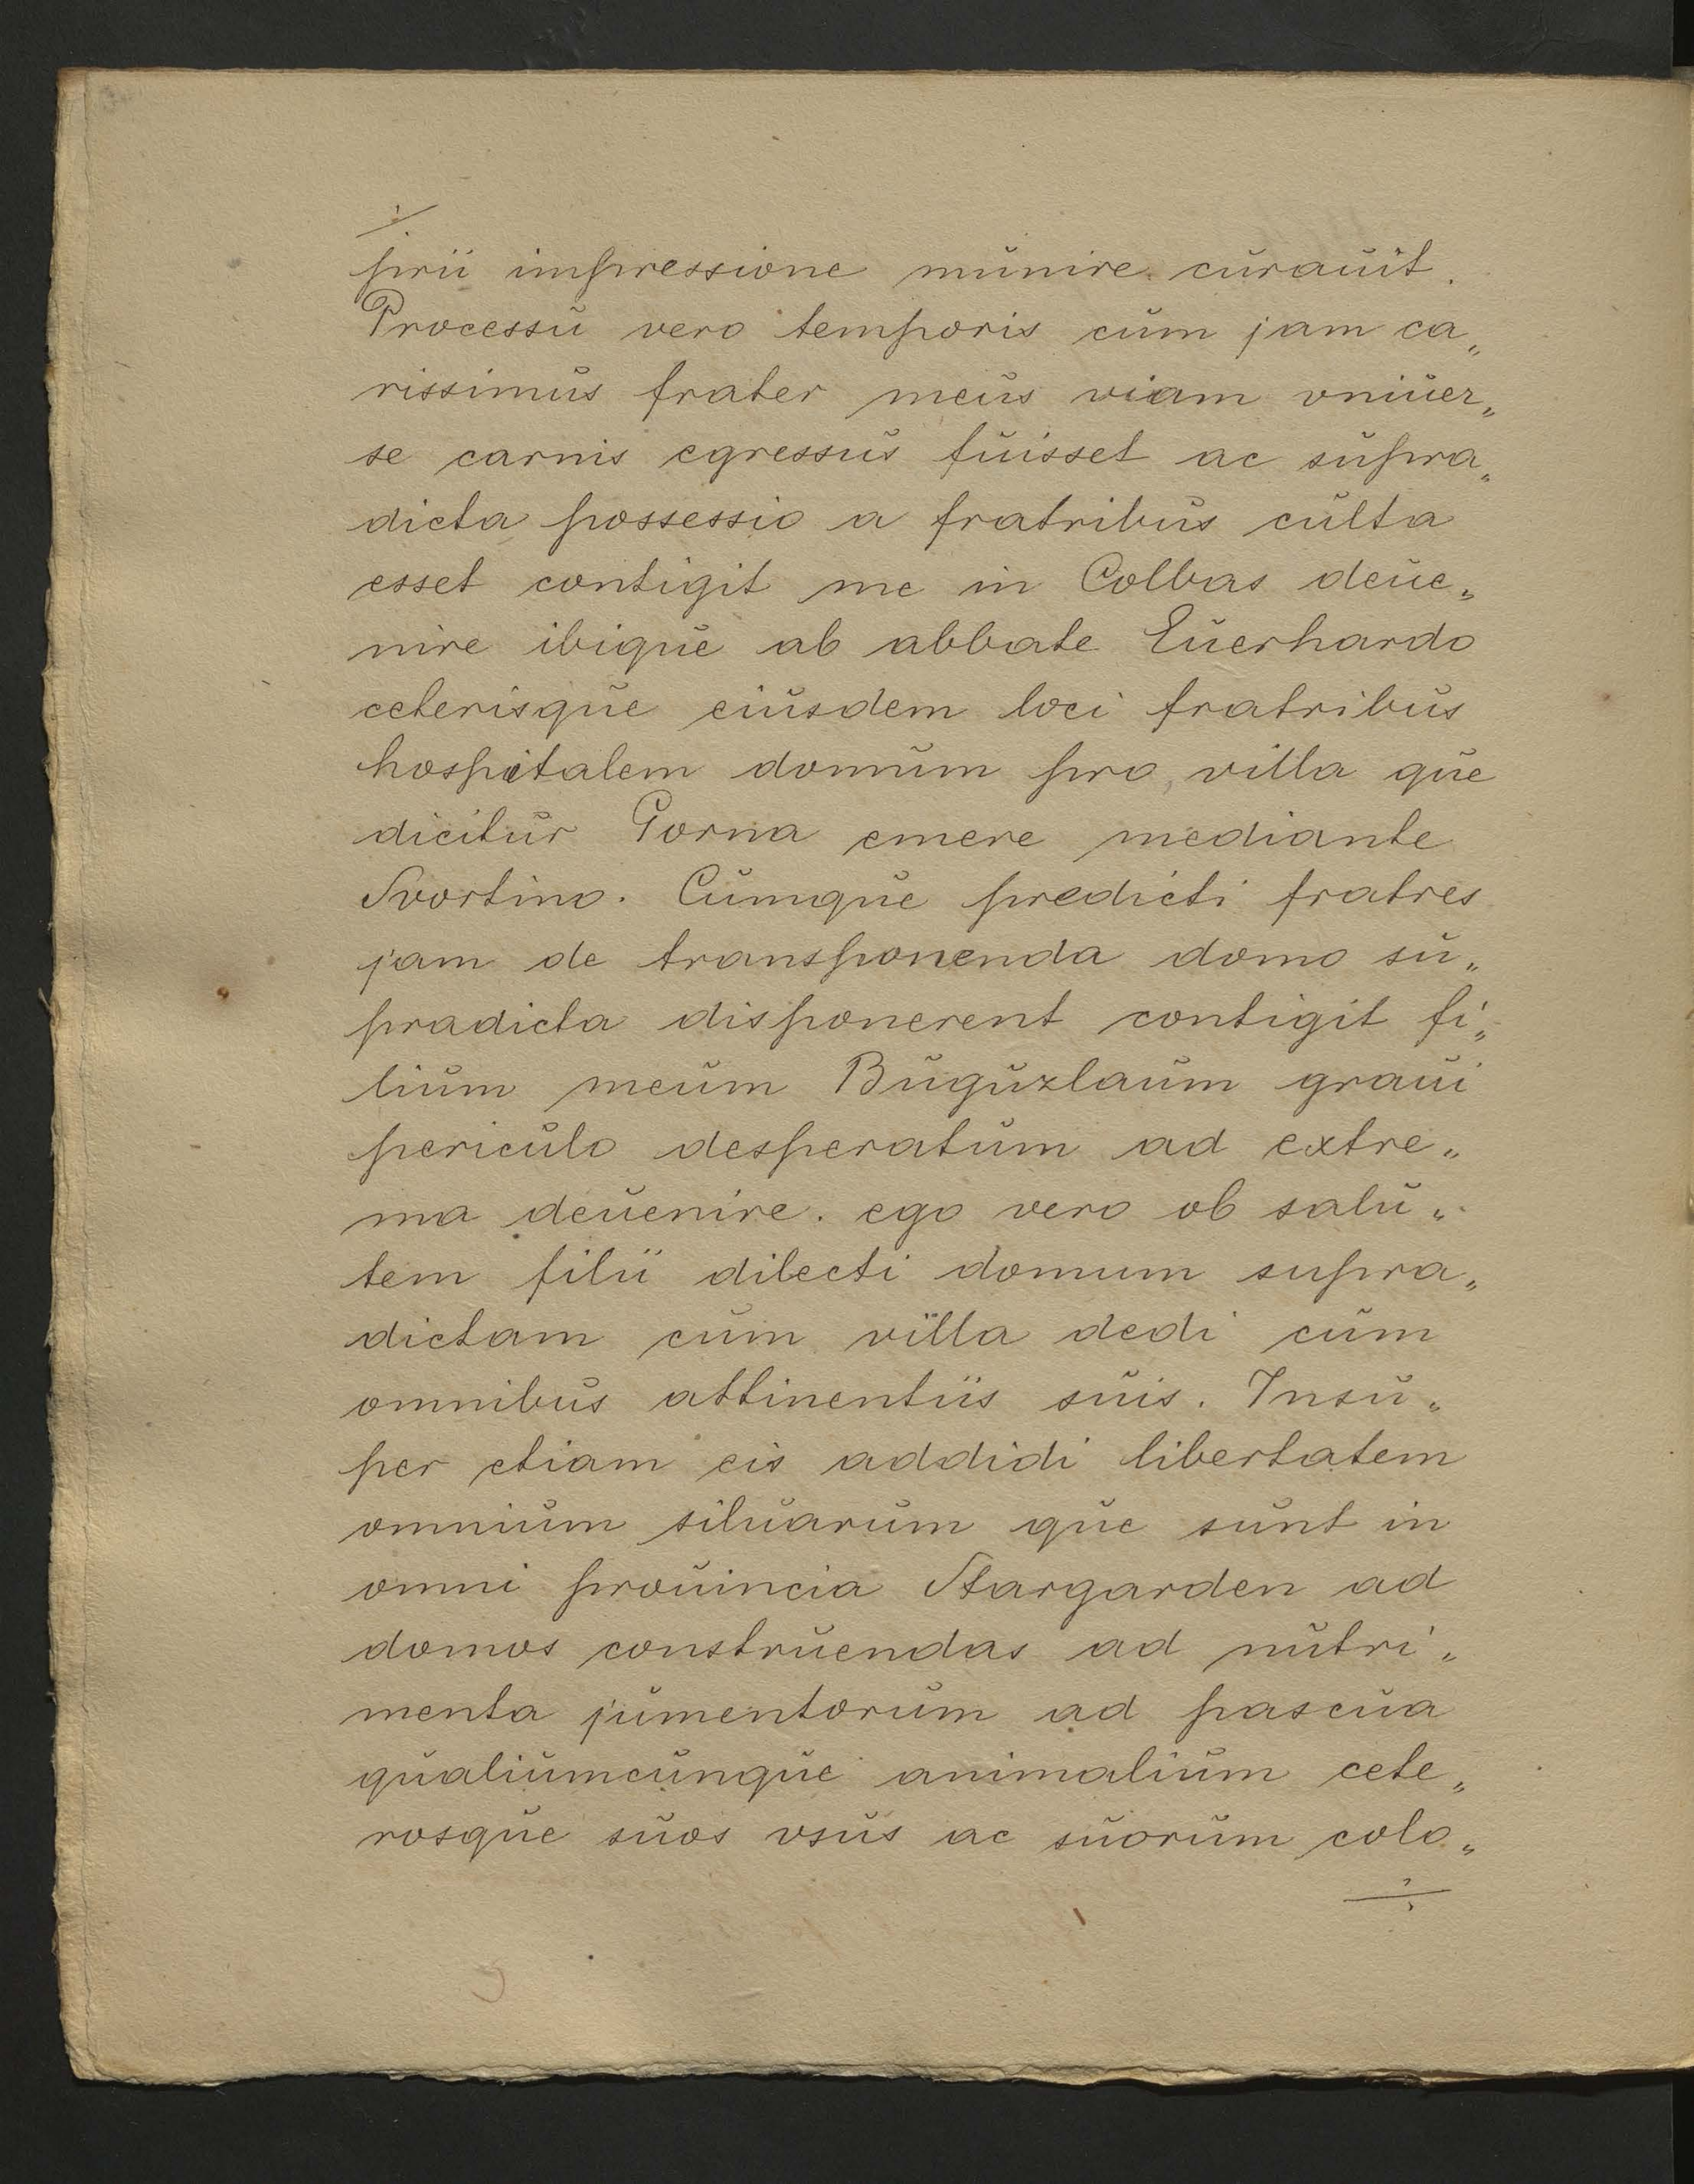 prii impressione munire curauit.
Processu vero temporis cum jam ca„
rissimus frater meus viam vniuer„
se carnis egressus fuisset ac supra„
dicta possessio a fratribus culta
esset contigit me in Colbas deue„
nire ibique ab abbate Euerhardo
ceterisque eiusdem loci fratribus
hospitalem domum pro villa que
dicitur Porna emere mediante
Svortino. Cumque predicti fratres
jam de transponenda domo su„
pradicta disponerent contigit fi„
lium meum Buguzlaum graui
periculo desperatum ad extre„
ma deuenire. ego vero ob salu„
tem filii dilecti domum supra„
dictam cum villa dedi cum
omnibus attinentiis suis. Insu„
per etiam eis addidi libertatem
omnium siluarum que sunt in
omni prouincia Stargarden ad
domos construendas ad nutri„
menta jumentorum ad pascua
qualiumcunque animalium cete„
rosque suos vsus ac suorum colo„